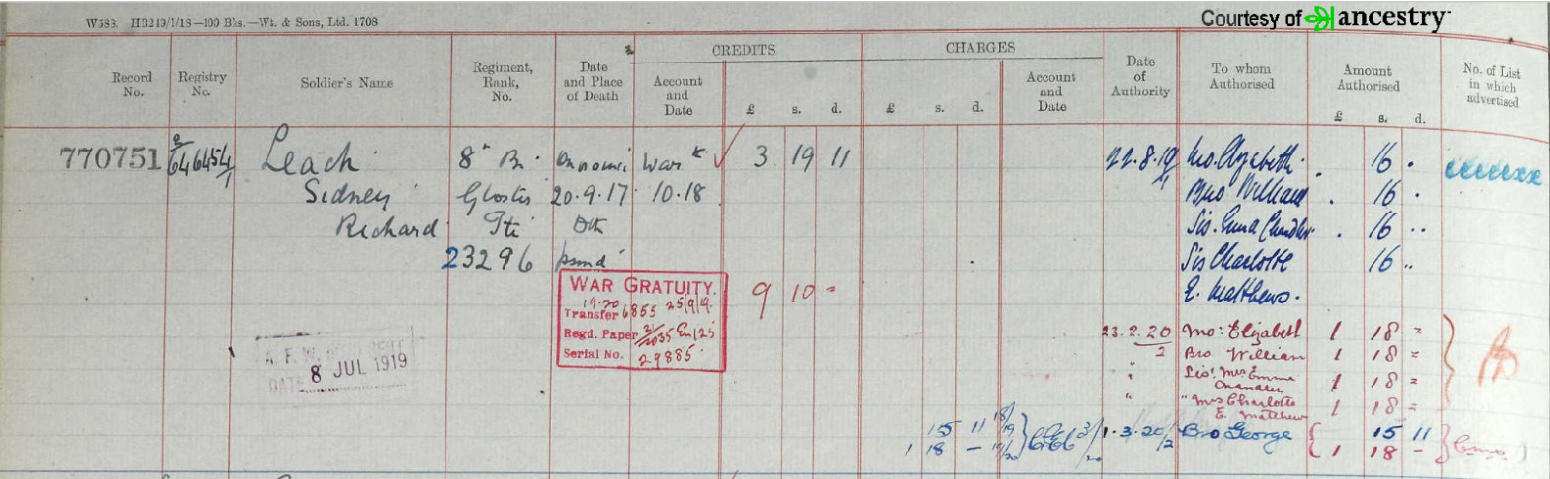 W583. HB249/1/18—100 Bks.—Wt. & Sons, Ltd. 1708
Courtesy of ancestry
CREDITS CHARGES
Record No. Registry No. Soldier's Name Regiment, Rank, No. Date and Place of Death Account and Date £ s. d. £ s. d. Account and Date Date of Authority To whom Authorised Amount Authorised £ s. d. No. of List in which advertised
770751 Leach 8th Bn. War 3 19 11 22.8.19 Mo. Elizabeth 16
Sidney Glosters 20.9.17 10.18 Bro William 16
Richard Pte Dth Sis. Emma Chandler 16
23296 psmd Sis Charlotte 16
E. Matthews.
WAR GRATUITY. 9 10 -
19.20
Transfer 6855 25/9/19.
Regd. Paper
Serial No. 29885
23.2.20 Mo: Elizabeth 1 18 =
2 Bro William 1 18 =
" Sis: Mrs Emma Chandler 1 18 =
" " Mrs Charlotte E. Matthew 1 18 =
A. F. W.
DATE 8 JUL 1919
15 11 18/19 1.3.20/2 Bro George 15 11
1 18 - 19/20 1 18 -